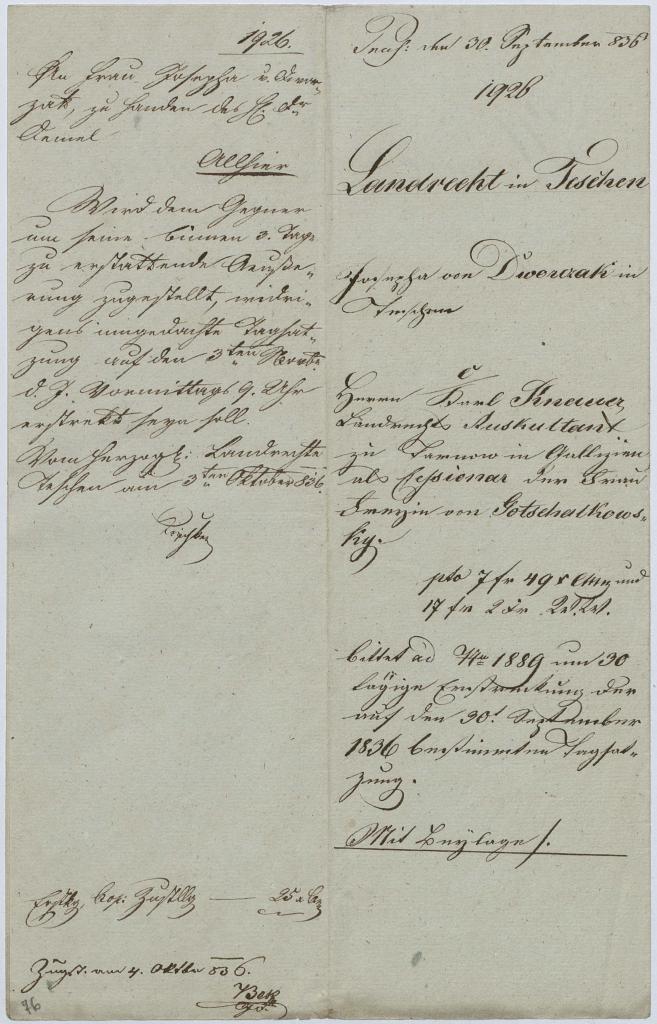 1926.
An Frau Josepha v. Dwor-
zak, zu Handen des H: Dr
Demel
Allhier
Wird dem Gegner
um seine binnen 3. Tage
zu erstattende Aeuße-
rung zugestellt, widri-
gens eingedachte Tagsat-
zung auf den 3ten Novbr
d. J. Vormittags 9. Uhr
erstreckt seyn soll.
Vom herzogl: Landrechte
Teschen am 3ten Oktober 836.
25 x
Zugst. am 4. Oktbr 836.
Bek
76
den 30. September 836
1926
Landrecht in Teschen
Josepha von Dworczak in
Teschen
c
Herrn Karl Knauer,
Landrechts Auskultant
zu Tarnow in Gallizien
als Cessionar der Frau
von Gotschalkows-
ky.
pto 7 fr 49 x CMz und
17 fr 2 xr W.W.
bittet ad Nru 1889 um 30
tägige Erstreckung der
auf den 30t September
1836 bestimmten Tagsat-
zung.
Mit Beylage /.